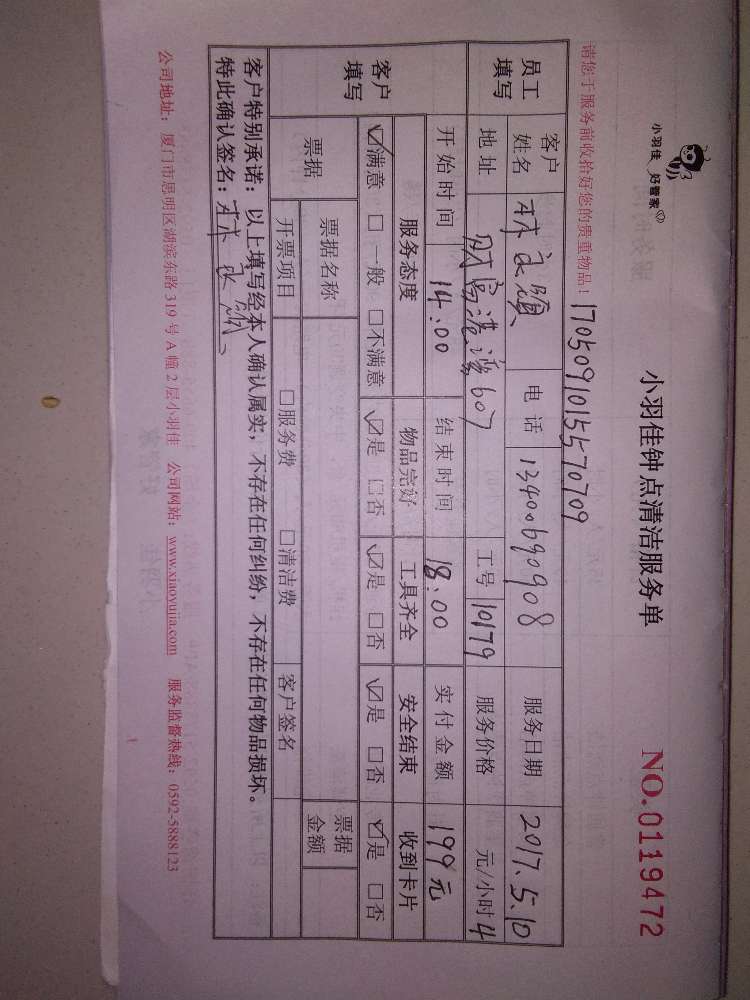 小羽佳 好管家
小羽佳钟点清洁服务单
NO.0119472
请您于服务前收拾好您的贵重物品！
1705091015570709
员工填写
客户姓名 林永顺 电话 13400690908 服务日期 2017.5.10
地址 财富港湾607 工号 10179 服务价格 元/小时 4
开始时间 14:00 结束时间 18:00 实付金额 199元
客户填写
服务态度 物品完好 工具齐全 安全结束 收到卡片
☑满意 □一般 □不满意 ☑是 □否 ☑是 □否 ☑是 □否 ☑是 □否
票据 票据名称 票据金额
开票项目 □服务费 □清洁费 客户签名
客户特别承诺：以上填写经本人确认属实，不存在任何纠纷，不存在任何物品损坏。
特此确认签名：林永顺
公司地址：厦门市思明区湖滨东路319号A幢2层小羽佳 公司网站：www.xiaoyujia.com 服务监督热线：0592-5888123